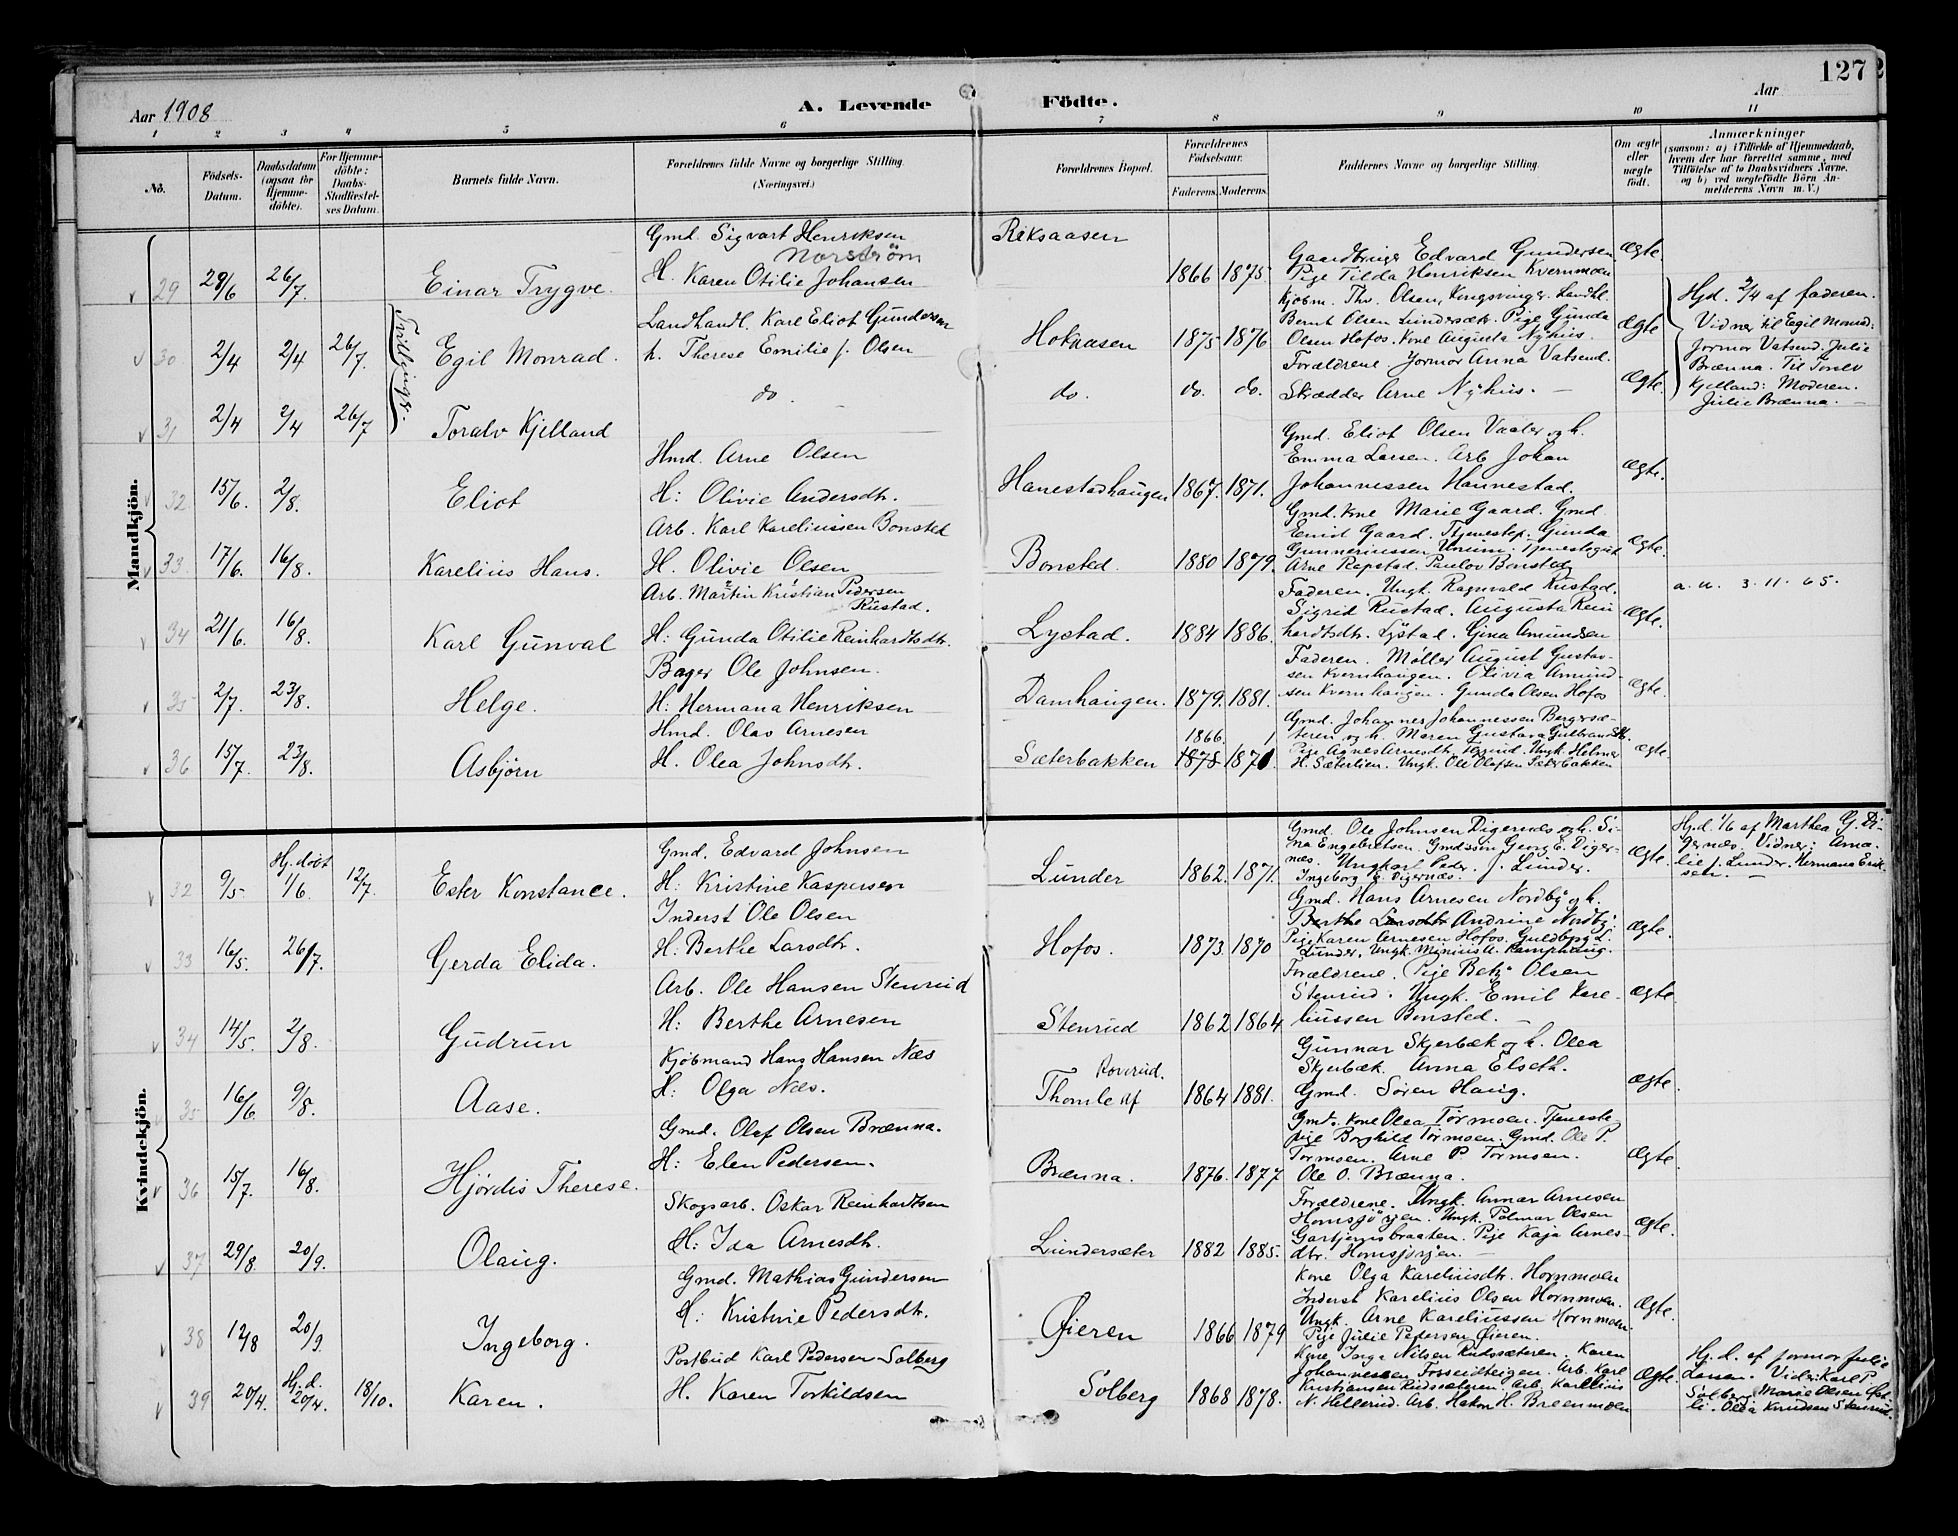 Aar 1908
A. Levende Födte.
Aar
127
1 2 3 4 5 6 7 8 9 10 11
No.
Födsels-Datum.
Daabsdatum (ogsaa for Hjemme-döbte).
For Hjemme-döbte: Daabs-Stadfæstel-ses Datum.
Barnets fulde Navn.
Forældrenes fulde Navne og borgerlige Stilling. (Næringsvei.)
Forældrenes Bopæl.
Forældrenes Födselsaar.
Faderens. Moderens.
Faddernes Navne og borgerlige Stilling.
Om ægte eller uægte födt.
Anmærkninger
(saasom: a) i Tilfælde af Hjemmedaab, hvem der har forrettet samme, med Tilföielse af to Daabsvidners Navne, og b) ved uægtefödte Börn An-melderens Navn m. V.)
Mandkjön.
29 28/6 26/7. Einar Trygve.
Gmd. Sigvart Henriksen
Norström
H. Karen Otilie Johansen
Riksaasen
1866 1875.
Gaardbruger Edvard Gundersen
Pige Tilda Henriksen Kvernmoen
Ægte
30 2/4 2/4 26/7.
Tvillinger.
Egil Monrad.
Landhandl. Karl Eliot Gundersen
h. Therese Emilie f. Olsen
Hokaasen
1875 1876
Kjöbm. Thv. Olsen, Kongsvinger. Landhl.
Bernt Olsen Lundersæter. Pige Gunda
Olsen Hofos. Kone Augusta Nyhus.
Forældrene Jormor Anna Vatsend.
Ægte
Hjd. 2/4 af faderen.
Vidner til Egil Monrad:
Jormor Vatsend. Julie
Brænna. Til Toralv
Kjelland: Moderen.
Julie Brænna.
31 2/4 2/4 26/7
Toralv Kjelland
do.
do.
do. do.
Skrædder Arne Nyhus.
Ægte
32 15/6. 2/8.
Eliot
Hmd. Arne Olsen
H: Olivie Andersdtr.
Hanestadhaugen
1867. 1871.
Gmd. Eliot Olsen Vaaler og h.
Emma Larsen. Arb. Johan
Johannessen Hannestad.
Ægte.
33 17/6. 16/8.
Karelius Hans.
Arb. Karl Kareliussen Bonsted
H. Olivie Olsen
Bonsted.
1880 1879.
Gmd. kone Marie Gaard. Gmd.
Emil Gaard. Tjenestep. Gunda
Gunneriussen Unum. Tjenestegut
Arne Repstad. Paulov Bonsted
Ægte.
34 21/6. 16/8.
Karl Gunval
Arb. Martin Kristian Pedersen
Rustad.
H: Gunda Otilie Reinhardtsdtr.
Lystad.
1884 1886.
Faderen. Ungk. Ragnvald Rustad.
Sigrid Rustad. Augusta Rein
hardtsdtr. Lystad. Gina Amundsen
Ægte.
a. u. 3. 11. 65.
35 2/7. 23/8.
Helge.
Bager Ole Johnsen.
H: Hermana Henriksen
Damhaugen.
1879. 1881.
Faderen. Møller August Gustav-
sen Kvernhaugen. Olivia Amund-
sen Kvernhaugen. Gunda Olsen Hofos
Ægte.
36 15/7. 23/8.
Asbjörn
Hmd. Olav Arnesen
H. Olea Johnsdtr.
Sæterbakken
1866
1878 1871.
Gmd. Johannes Johannessen Bergersæ-
teren og h. Maren Gustava Gulbrandsdt.
Pige Agnes Arnesdtr. Ungk. Helmer
H. Sæterlien. Ungk. Ole Olafsen Sæterbakken
Ægte.
Kvindekjön.
32 9/5 Hj.döbt 1/6 12/7.
Ester Konstance.
Gmd. Edvard Johnsen
H: Kristine Kaspersen
Lunder
1862. 1871.
Gmd. Ole Johnsen Digernæs og h. Si-
na Engebretsen. Gmdssön Georg E. Diger-
næs. Ungkarl Peder J. Lunder.
Ingeborg E. Digernæs.
Ægte.
Hj.d. 1/6 af Marthea G. Di-
gernes. Vidner: Ama-
lie J. Lunder. Hermana Erik-
sen.
33 16/5. 26/7.
Gerda Elida.
Inderst Ole Olsen
H: Berthe Larsdtr.
Hofos.
1873. 1870
Gmd. Hans Arnesen Nordby og h.
Berthe Larsdtr Andrine Nordby.
Pige Karen Arnesen Hofos. Guldbr. L.
Lunder. Ungk. Minius A. Kamphaug.
Ægte.
34 14/5. 2/8.
Gudrun
Arb. Ole Hansen Stenrud
H: Berthe Arnesen
Stenrud
1862 1864
Forældrene. Pige Betzy Olsen
Stenrud. Ungk. Emil Kare-
liussen Bonsted.
Ægte.
35 16/6. 9/8.
Aase.
Kjöbmand Hans Hansen Næs
H: Olga Næs.
Roverud.
Thomledf
1864 1881.
Gunnar Skjerbæk og h. Olea
Skjerbæk. Anna Elseth.
Gmd. Sören Haug.
Ægte.
36 15/7. 16/8.
Hjördis Therese.
Gmd. Olaf Olsen Brænna.
H: Elen Pedersen.
Brænna.
1876. 1877
Gmd. kone Olea Tormoen. Tjeneste
pige Borghild Tormoen. Gmd. Ole P.
Tormoen. Arne P. Tormoen.
Ole O. Brænna.
Ægte.
37 29/8. 20/9.
Olaug.
Skogsarb. Oskar Reinhardtsen
H: Ida Arnesdtr.
Lundersæter
1882 1885.
Forældrene. Ungk. Annar Arnesen
Homsjörjen. Ungk. Palmar Olsen
Gartjernsbraaten. Pige Kaja Arnes-
dtr. Homsjorjen.
Ægte.
38 12/8 20/9.
Ingeborg.
Gmd. Mathias Gundersen
H: Kristine Pedersdtr.
Øieren
1866 1879
Kone Olga Kareliusdtr. Hornmoen
Inderst Karelius Olsen Hornmoen.
Ungk. Arne Kareliussen Hornmoen.
Pige Julie Petersen Øieren.
Ægte.
39 20/4. Hj.d. 20/4. 18/10.
Karen.
Postbud Karl Pedersen Solberg
H. Karen Torkildsen
Solberg
1868 1878.
Kone Inga Nilsen Rudssæteren. Karen
Johannessen Forseidteigen. Arb. Karl
Kristiansen Rudssæteren. Arb. Karelius
N. Hellerud. Arb. Hakon H. Breenmoen
Ægte.
Hj.d. af jormor Julie
Larsen. Vidn: Karl P.
Solberg, Marie Olsen
Olea Knudsen Stenrud.